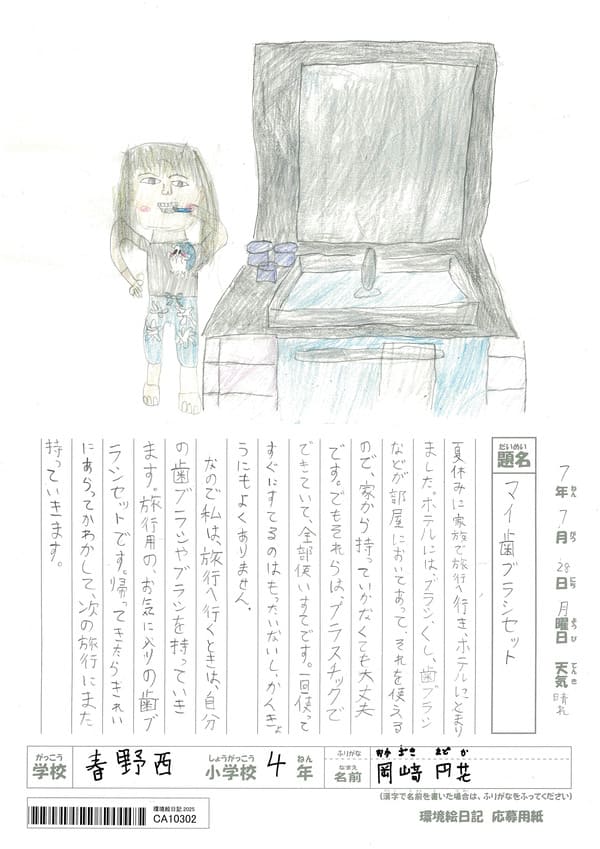 7年7月28日月曜日 天気 晴れ
ねん がつ にち ようび てんき
だいめい
題名 マイ歯ブラシセット
夏休みに家族で旅行へ行き、ホテルにとまり
ました。ホテルにはブラシ、くし、歯ブラシ
などが部屋においてあって、それを使える
ので、家から持っていかなくても大丈夫
です。でもそれらは、プラスチックで
できていて、全部使いすてです。一回使って
すぐにすてるのはもったいないし、かんきょ
うにもよくありません。
なので私は、旅行へ行くときは、自分
の歯ブラシやブラシを持っていき
ます。旅行用の、お気に入りの歯ブ
ラシセットです。帰ってきたらきれい
にあらってかわかして、次の旅行にまた
持っていきます。
がっこう しょうがっこう ねん
学校 春野西 小学校 4年
ふりがな おかざき まどか
なまえ
名前 岡﨑 円花
(漢字で名前を書いた場合は、ふりがなをふってください)
環境絵日記 応募用紙
環境絵日記.2025
CA10302